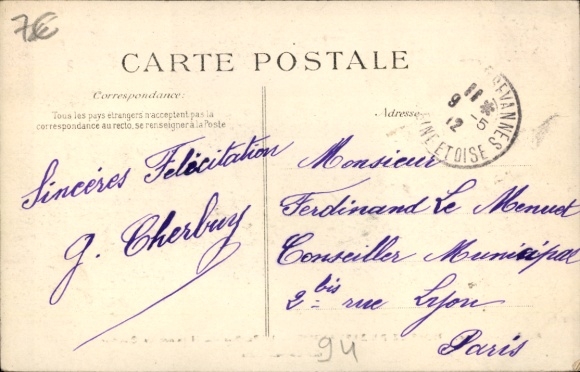 7€
CARTE POSTALE
Correspondance:
Tous les pays étrangers n'acceptent pas la
correspondance au recto, se renseigner à la Poste
Adresse
11 *
9 -5
12
SEVANNES
INE ET OISE
Sincères Félécitation
G. Cherbuy
Monsieur
Ferdinand Le Menuet
Conseiller Municipal
2 bis rue Lyon
Paris
94